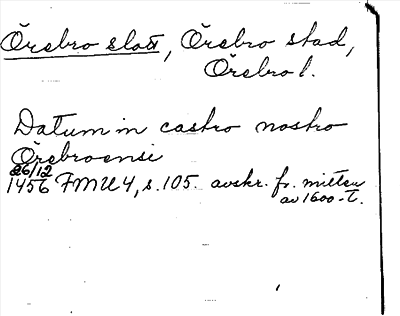 Örebro slott, Örebro stad,
Örebro l.
Datum in castro nostro
Örebroensi
26/12
1456 FMU 4, s. 105. avskr. fr. mitten
av 1600-t.